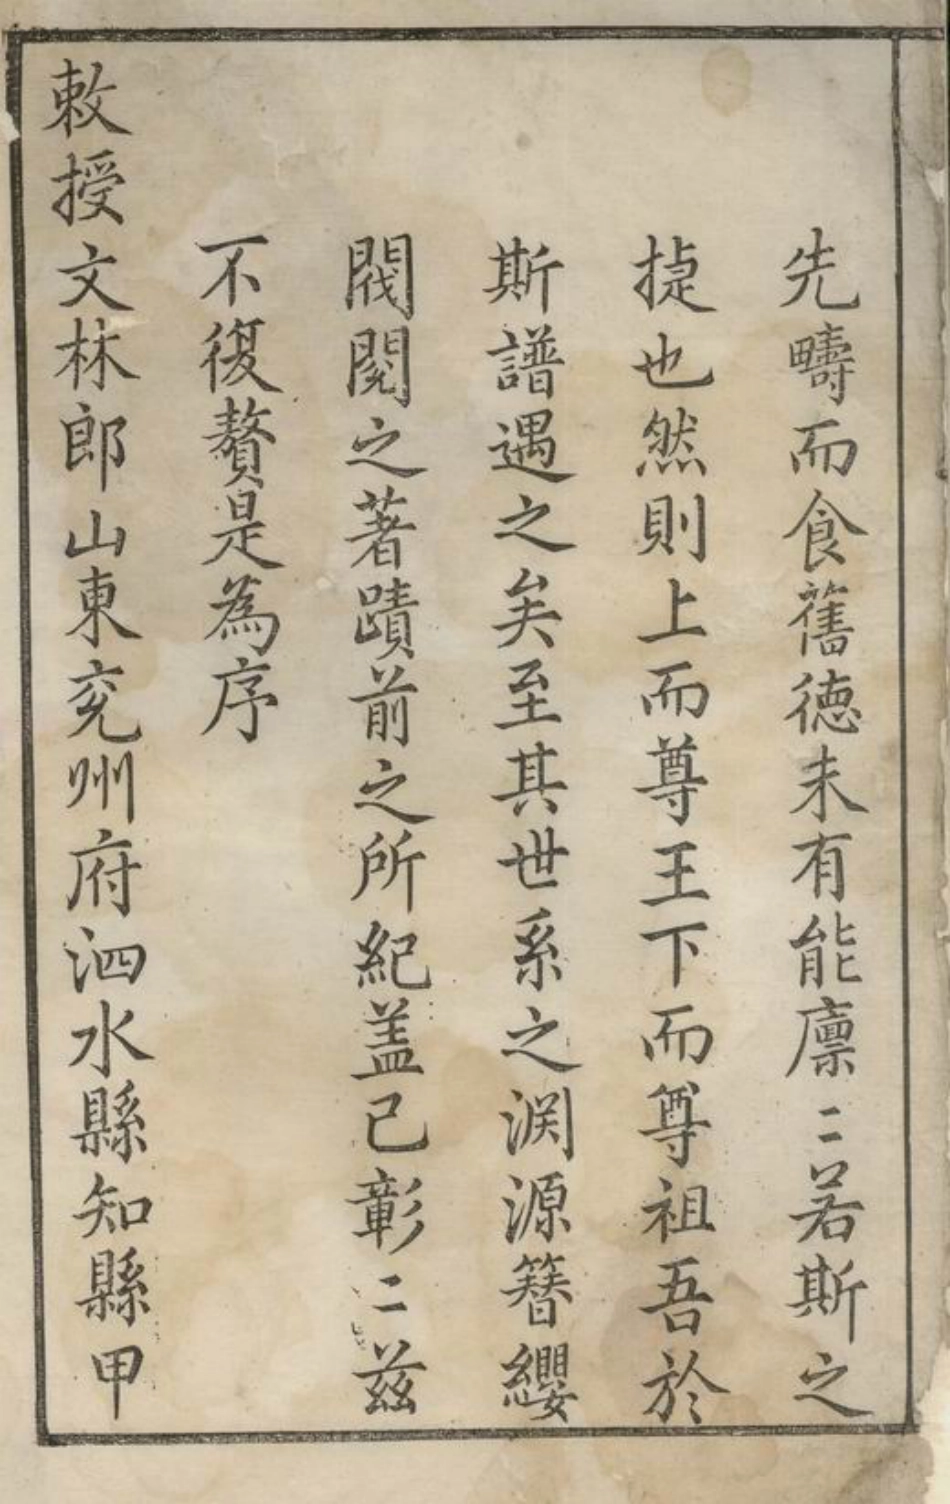 先疇而食舊德未有能廪二若斯之
捷也然則上而尊王下而尊祖吾於
斯譜遇之矣至其世系之渊源簪纓
閥閱之著蹟前之所紀盖已彰二兹
不復贅是為序
敕授文林郎山東兖州府泗水縣知縣甲